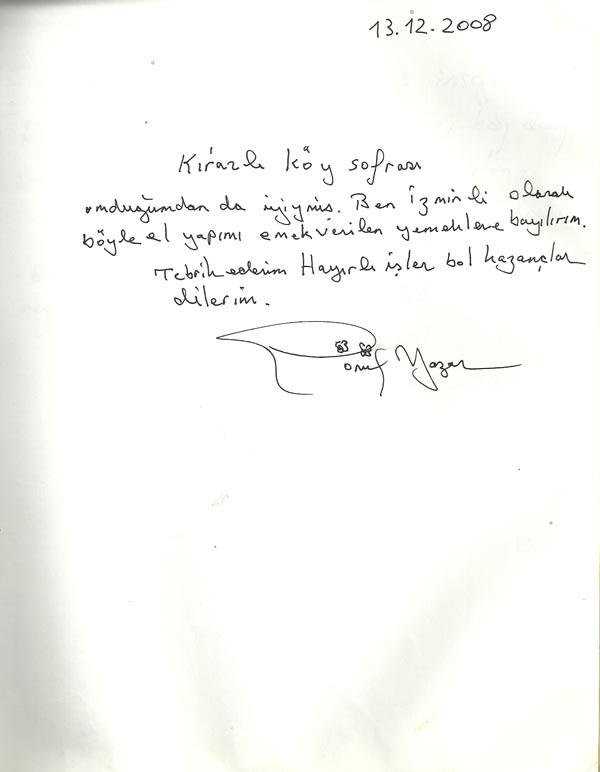 13.12.2008
Kirazlı köy sofrası
umduğumdan da iyiymiş. Ben İzmirli olarak
böyle el yapımı emek verilen yemeklere bayılırım.
Tebrik ederim Hayırlı işler bol kazançlar
dilerim.
Yazar